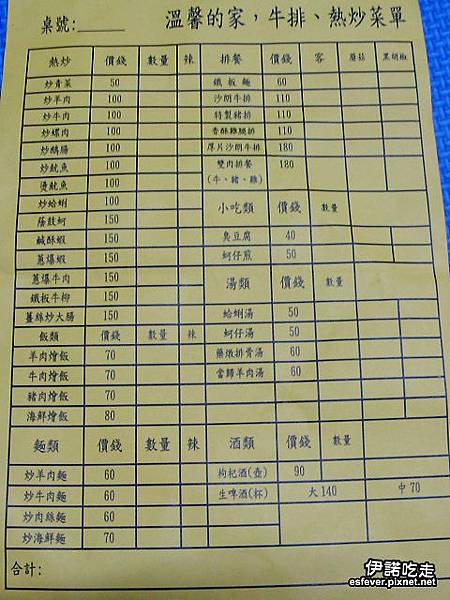 桌號:
溫馨的家，牛排、熱炒菜單
熱炒 價錢 數量 辣 排餐 價錢 客 蘑菇 黑胡椒
炒青菜 50 鐵板麵 60
炒羊肉 100 沙朗牛排 110
炒牛肉 100 特製豬排 110
炒螺肉 100 香酥雞腿排 110
炒鵝腸 100 厚片沙朗牛排 180
炒魷魚 100 雙肉排餐 180
燙魷魚 100 (牛、豬、雞)
炒蛤蜊 100 小吃類 價錢 數量
蔭鼓蚵 150
鹹酥蝦 150 臭豆腐 40
蔥爆蝦 150 蚵仔煎 50
蔥爆牛肉 150 湯類 價錢 數量
鐵板牛柳 150
薑絲炒大腸 150 蛤蜊湯 50
飯類 價錢 數量 辣 蚵仔湯 50
羊肉燴飯 70 藥燉排骨湯 60
牛肉燴飯 70 當歸羊肉湯 60
豬肉燴飯 70
海鮮燴飯 80
麵類 價錢 數量 辣 酒類 價錢 數量
炒羊肉麵 60 枸杞酒(壺) 90
炒牛肉麵 60 生啤酒(杯) 大140 中70
炒肉絲麵 60
炒海鮮麵 70
合計:
伊諾吃走
esfever.pixnet.net